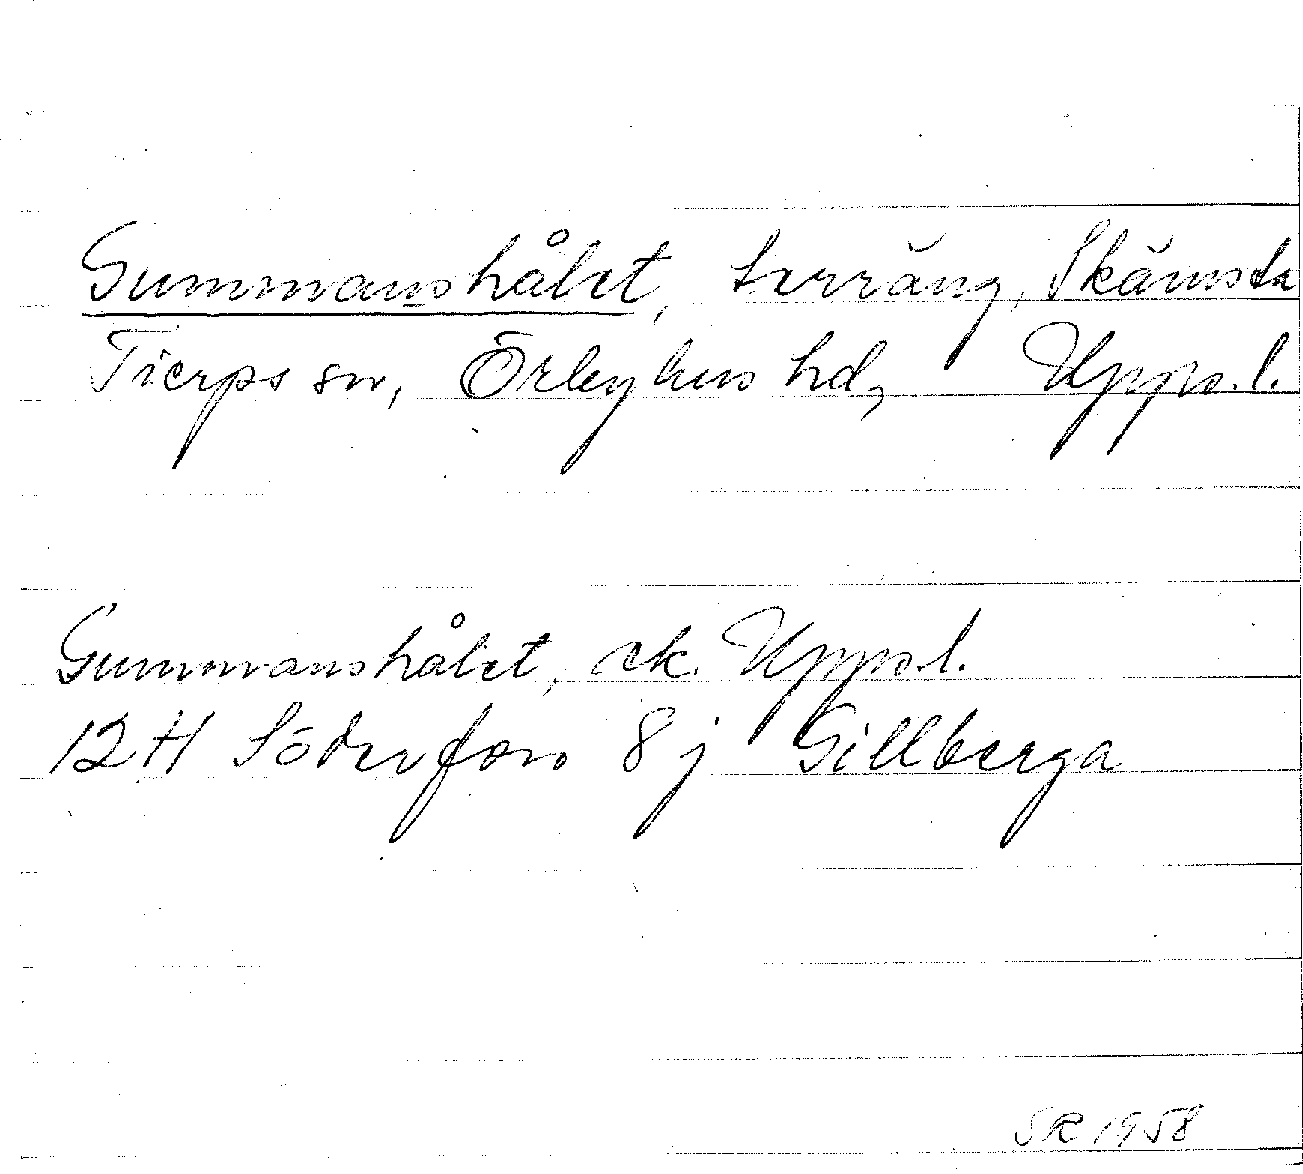 Gummanshålet, terräng, Skämsta
Tierps sn, Örbyhus hd, Uppl.
Gummanshålet, ek. Uppl.
12H Söderfors 8j Gillberga
SR 1958